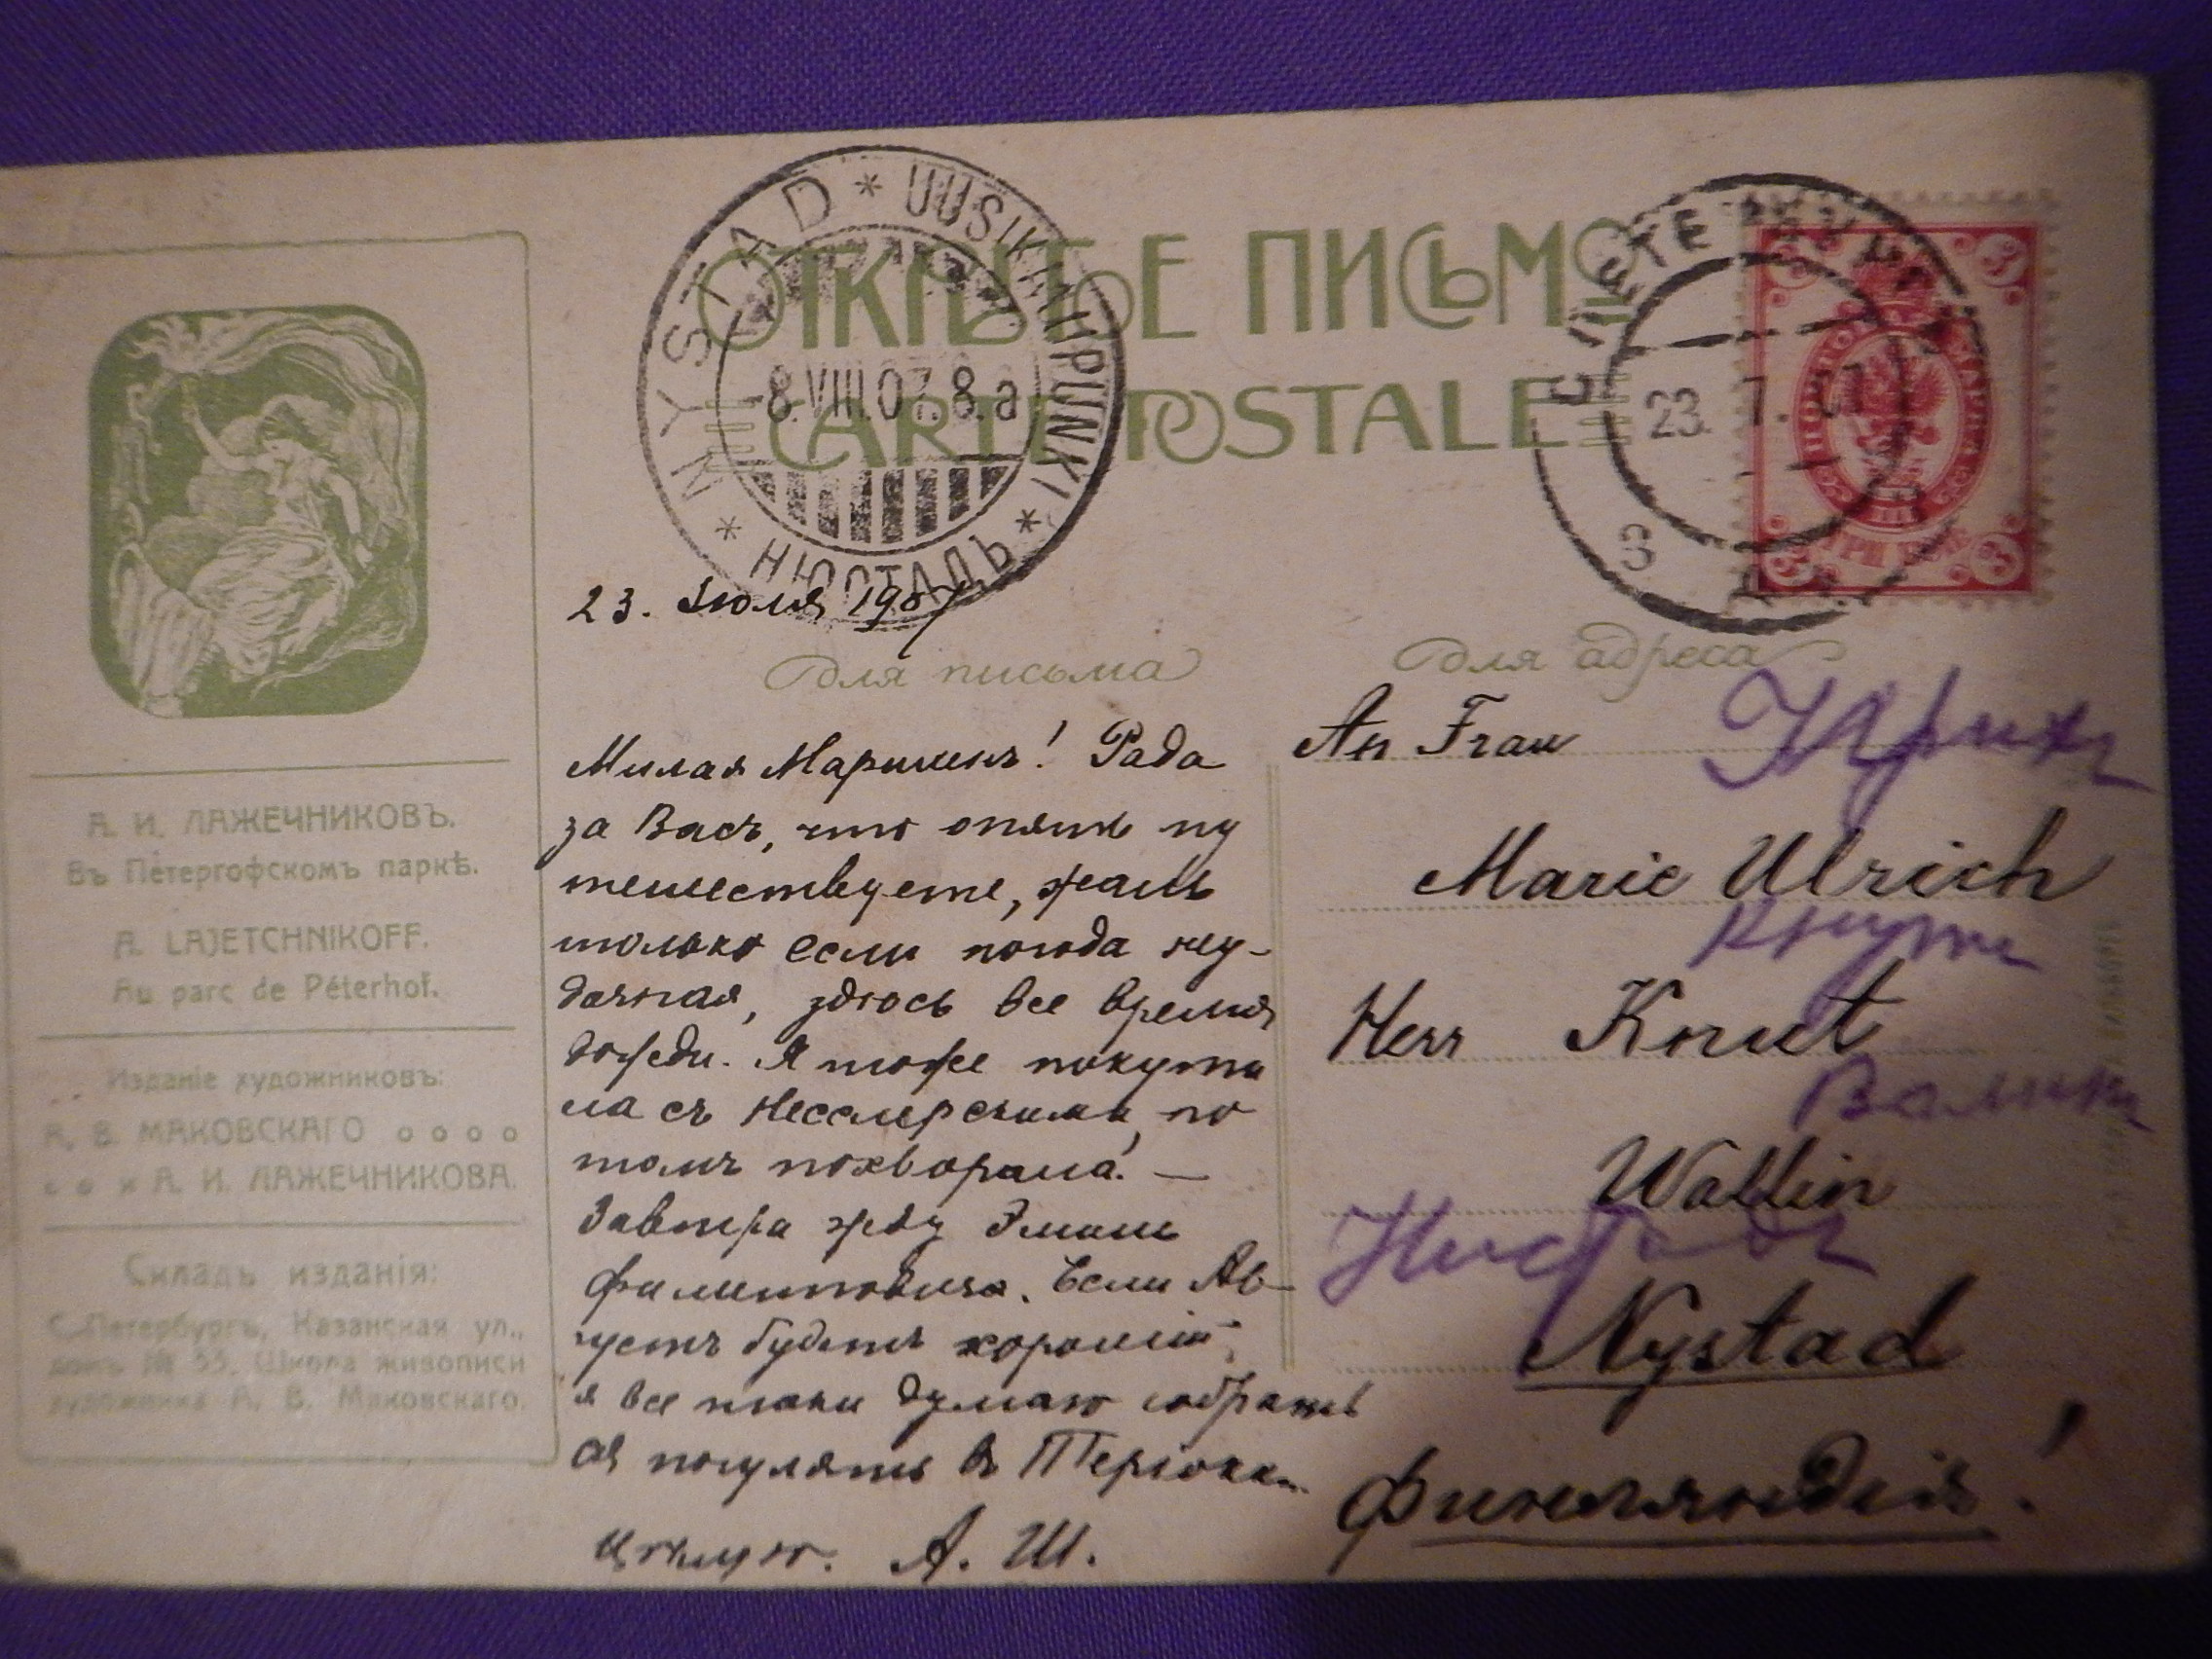 ОТКРЫТОЕ ПИСЬМО
CARTE POSTALE
NYSTAD * UUSIKAUPUNKI * НЮСТАДЪ *
8.VIII.07. 8.a
С. ПЕТЕРБУРГЪ
23. 7. 07
ТРИ КОП
3
А. И. ЛАЖЕЧНИКОВЪ.
Въ Петергофскомъ паркѣ.
A. LAJETCHNIKOFF.
Au parc de Péterhof.
Изданіе художниковъ:
А. В. МАКОВСКАГО
А. И. ЛАЖЕЧНИКОВА.
Складъ изданія:
С.Петербургъ, Казанская ул.,
домъ № 33. Школа живописи
художника А. В. Маковскаго.
23. Iюля 1907
Для письма
Милая Марихенъ! Рада
за Васъ, что опять пу
тешествуете, жаль
только если погода неу-
дачная, здѣсь все время
дожди. Я тоже покути
ла съ Несслерскими, по
томъ похворала. —
Завтра жду Эмиль
Филипповича. Если Ав-
густъ будетъ хорошій,
я все таки думаю собрать
ся погулять въ Терiокки.
Цѣлую. А. Ш.
Для адреса
An Frau
Marie Ulrich
Кнутъ
Herr Knut
Валинъ
Wallin
Нистадъ
Nystad
Финляндія!